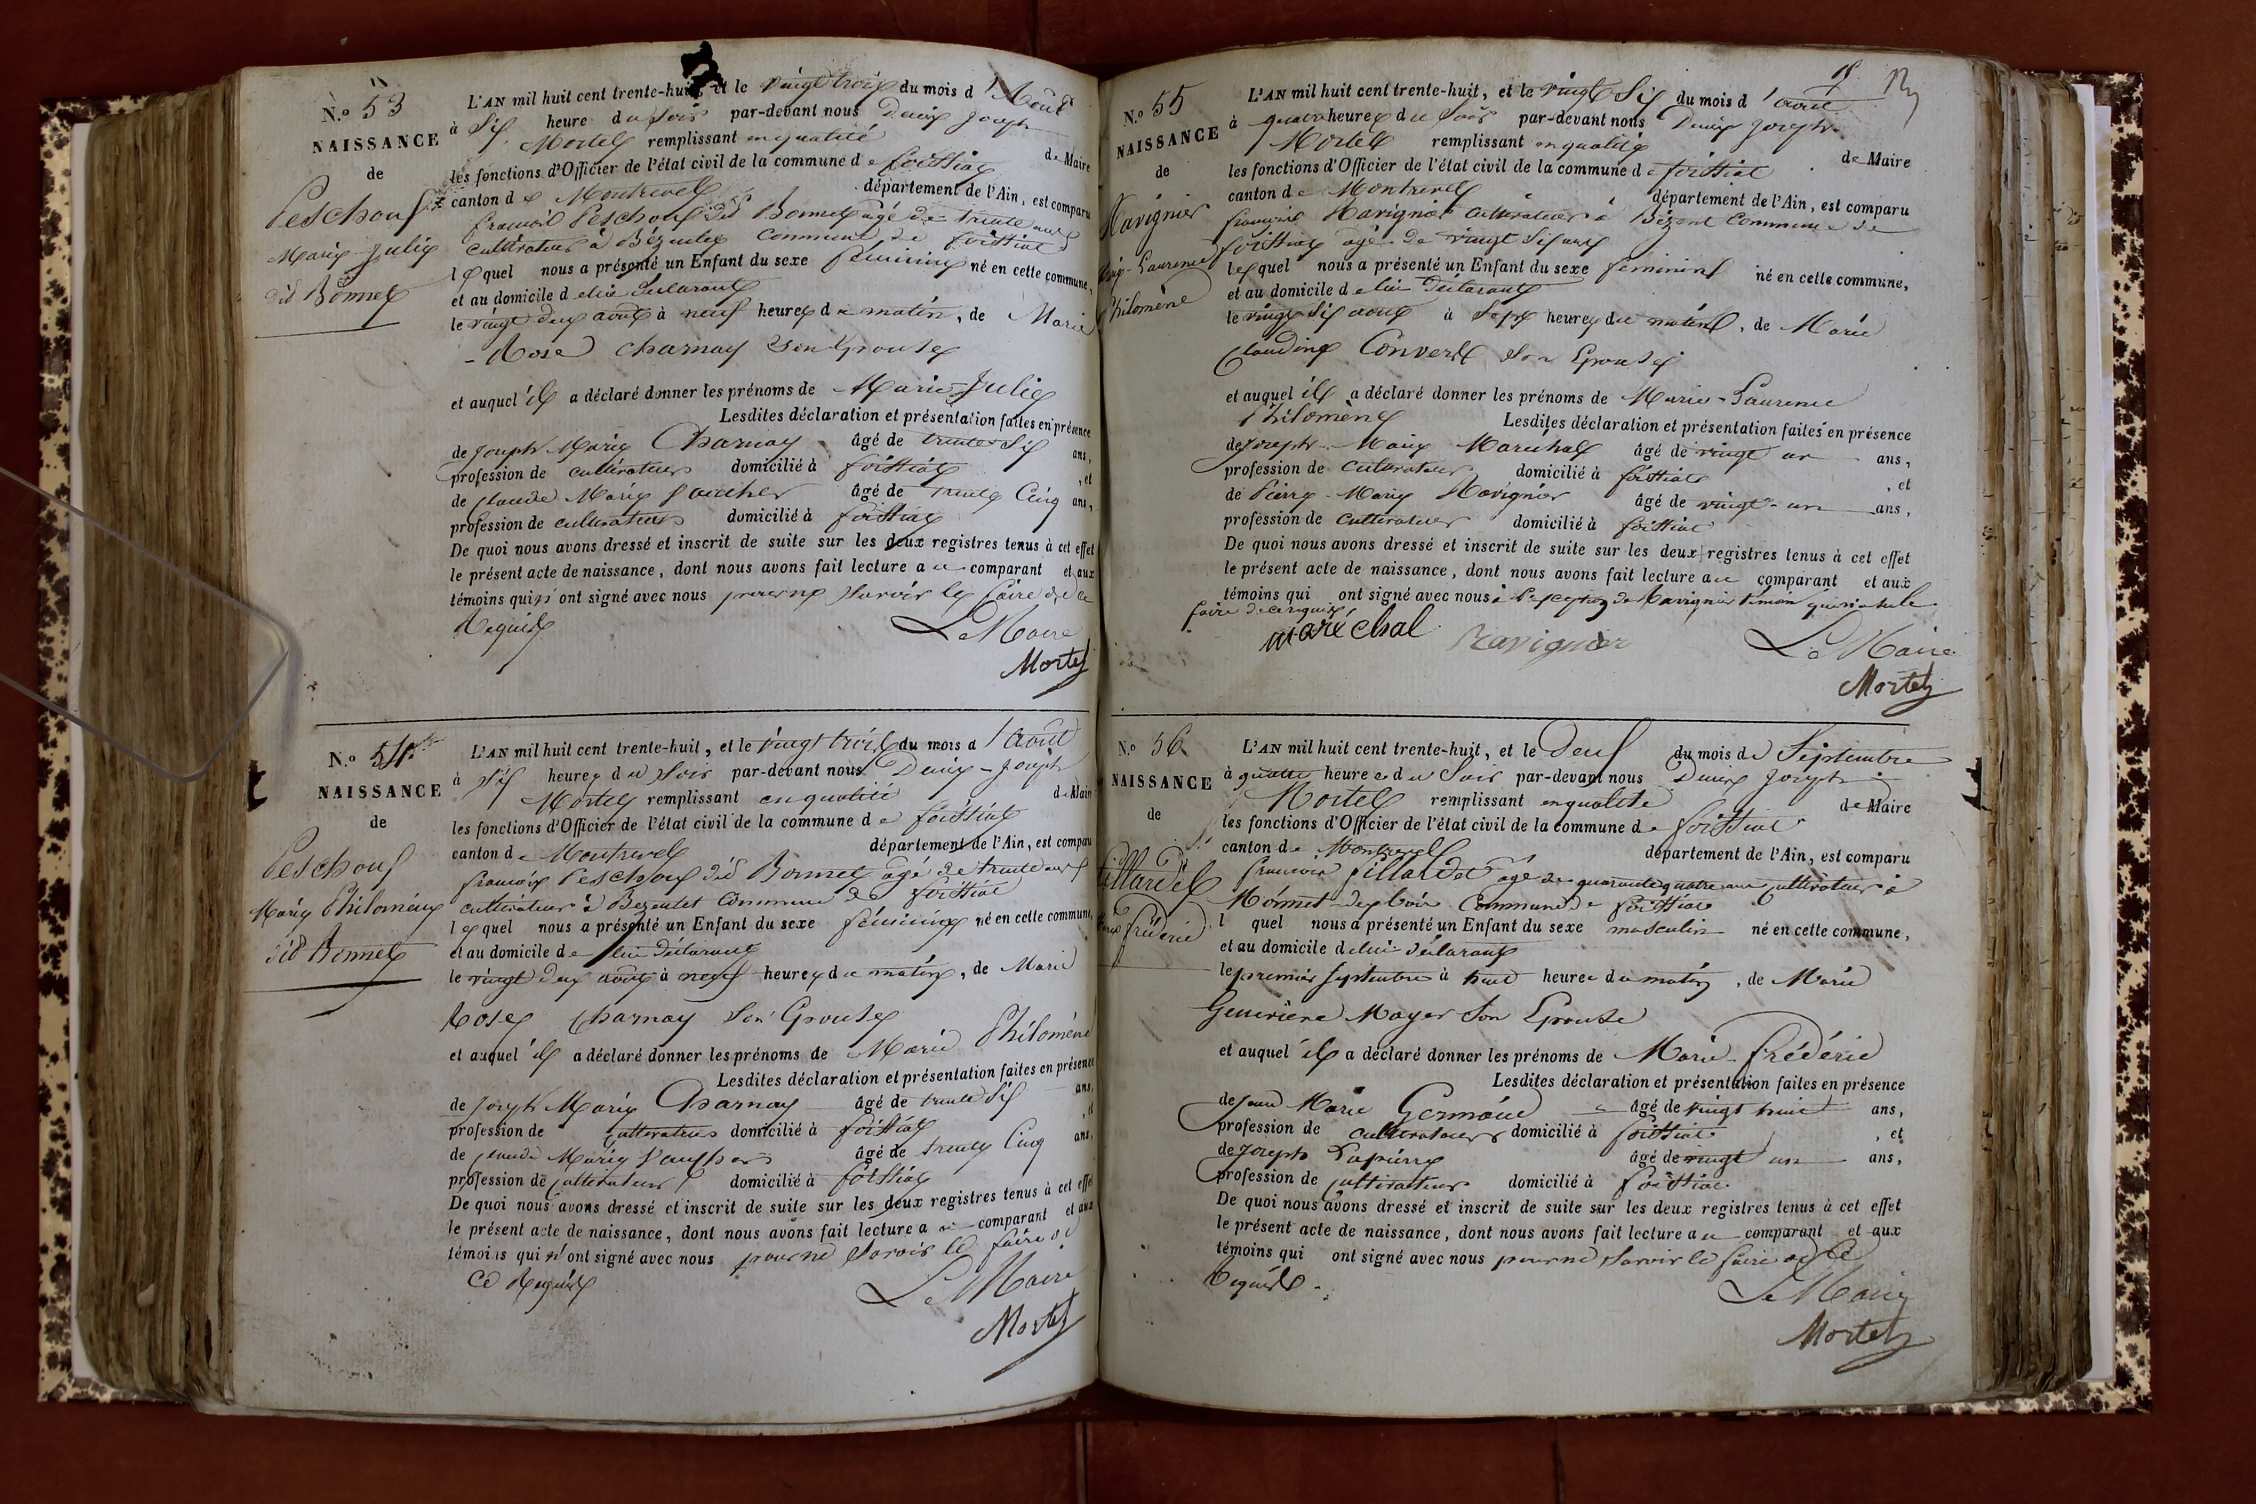 N.º 53
NAISSANCE
de
Peschoux
Marie-Julie
dit Bonnet
L'AN mil huit cent trente-huit, et le vingt trois du mois d'Août
à Six heure du Soir par-devant nous Denix Joseph
Mortel remplissant en qualité de Maire
les fonctions d'Officier de l'état civil de la commune de foissiat
canton de Montrevel département de l'Ain, est comparu
françois Peschoux dit Bonnet agé de trente ans
cultivateur à Bézentet commune de foissiat
lequel nous a présenté un Enfant du sexe féminin né en cette commune,
et au domicile de lui déclarant
le vingt deux août à neuf heures du matin, de Marie
-Rose Charnay Son Epouse
et auquel il a déclaré donner les prénoms de Marie-Julie
Lesdites déclaration et présentation faites en présence
de Joseph Marie Charnay âgé de trente Six ans,
profession de cultivateur domicilié à foissiat, et
de Claude Marie âgé de trente Cinq ans,
profession de cultivateur domicilié à foissiat
De quoi nous avons dressé et inscrit de suite sur les deux registres tenus à cet effet
le présent acte de naissance, dont nous avons fait lecture au comparant et aux
témoins qui n'ont signé avec nous pour ne Savoir le faire de ce
Requis
Le Maire
Mortel
N.º 54
NAISSANCE
de
Peschoux
Marie Philomène
dit Bonnet
L'AN mil huit cent trente-huit, et le vingt trois du mois d'août
à Six heures du Soir par-devant nous Denix-Joseph
Mortel remplissant en qualité de Maire
les fonctions d'Officier de l'état civil de la commune de foissiat
canton de Montrevel département de l'Ain, est comparu
françois Peschoux dit Bonnet agé de trente ans
cultivateur à Bezentet Commune de foissiat
lequel nous a présenté un Enfant du sexe féminin né en cette commune,
et au domicile de lui déclarant
le vingt deux août à neuf heures du matin, de Marie
Rose Charnay Son Epouse
et auquel il a déclaré donner les prénoms de Marie Philomène
Lesdites déclaration et présentation faites en présence
de Joseph Marie Charnay âgé de trente Six ans,
profession de Cultivateur domicilié à foissiat, et
de Claude Marie âgé de trente Cinq ans,
profession de Cultivateur domicilié à foissiat
De quoi nous avons dressé et inscrit de suite sur les deux registres tenus à cet effet
le présent acte de naissance, dont nous avons fait lecture au comparant et aux
témoins qui n'ont signé avec nous pour ne Savoir le faire de
ce Requis
Le Maire
Mortel
N.º 55
NAISSANCE
de
Navignier
Marie-Laurence
Philomène
L'AN mil huit cent trente-huit, et le vingt Six du mois d'août
à quatre heures du Soir par-devant nous Denix Joseph
Mortel remplissant en qualité de Maire
les fonctions d'Officier de l'état civil de la commune de foissiat
canton de Montrevel département de l'Ain, est comparu
françois Navignier Cultivateur à Bézent Commune de
foissiat agé de vingt Six ans
lequel nous a présenté un Enfant du sexe féminin né en cette commune,
et au domicile de lui Déclarant
le vingt Six aout à Sept heures du matin, de Marie
Claudine Convert Son Epouse
et auquel il a déclaré donner les prénoms de Marie-Laurence
Philomène Lesdites déclaration et présentation faites en présence
de Joseph-Marie Maréchal âgé de vingt un ans,
profession de Cultivateur domicilié à foissiat, et
de Pierre-Marie Navignier âgé de vingt-un ans,
profession de Cultivateur domicilié à foissiat
De quoi nous avons dressé et inscrit de suite sur les deux registres tenus à cet effet
le présent acte de naissance, dont nous avons fait lecture au comparant et aux
témoins qui ont signé avec nous à l'exception de Navignier témoin qui n'a su le
faire de ce requis
maréchal Navignier
Le Maire
Mortel
N.º 56
NAISSANCE
de
Pillardet
Marie Fréderic
L'AN mil huit cent trente-huit, et le Deux du mois de Septembre
à quatre heures du Soir par-devant nous Denix Joseph
Mortel remplissant en qualité de Maire
les fonctions d'Officier de l'état civil de la commune de foissiat
canton de Montrevel département de l'Ain, est comparu
françois Pillardet agé de quarante quatre ans Cultivateur à
Commune de foissiat
l quel nous a présenté un Enfant du sexe masculin né en cette commune,
et au domicile de lui déclarant
le premier Septembre à huit heures du matin, de Marie
Geneviève Mayer Son Epouse
et auquel il a déclaré donner les prénoms de Marie-Frédéric
Lesdites déclaration et présentation faites en présence
de Jean Marie Germain âgé de vingt huit ans,
profession de cultivateur domicilié à foissiat, et
de Joseph Lapierre âgé de vingt un ans,
profession de Cultivateur domicilié à foissiat
De quoi nous avons dressé et inscrit de suite sur les deux registres tenus à cet effet
le présent acte de naissance, dont nous avons fait lecture au comparant et aux
témoins qui ont signé avec nous pour ne Savoir le faire de Ce
Requis
Le Maire
Mortel